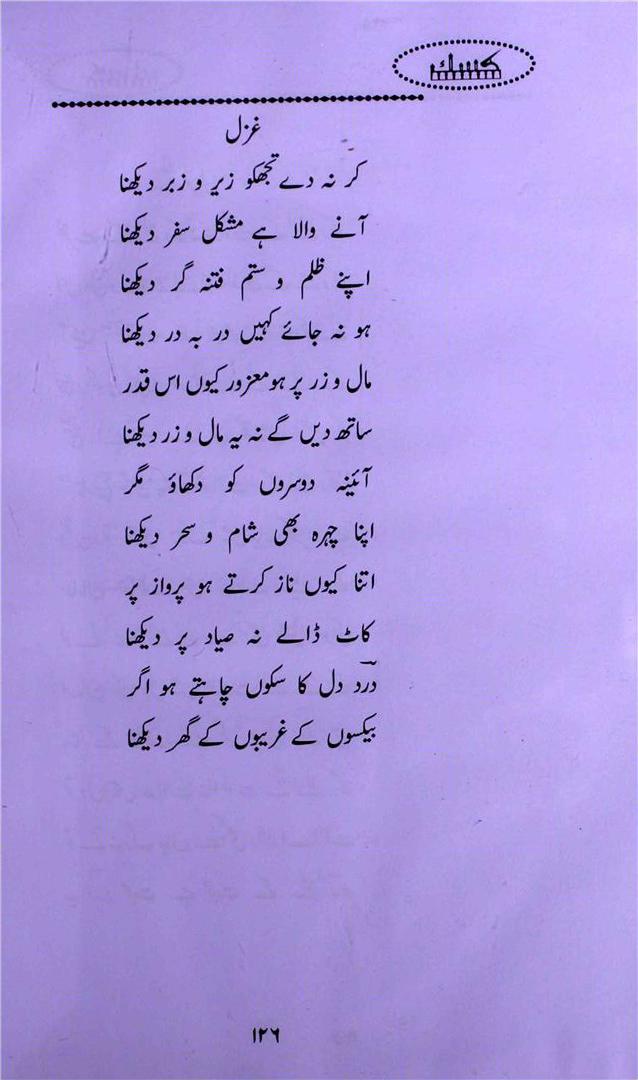 کسک
غزل
کر نہ دے تجھکو زیر و زبر دیکھنا
آنے والا ہے مشکل سفر دیکھنا
اپنے ظلم و ستم فتنہ گر دیکھنا
ہو نہ جائے کہیں در بہ در دیکھنا
مال و زر پر ہو معزور کیوں اس قدر
ساتھ دیں گے نہ یہ مال و زر دیکھنا
آئینہ دوسروں کو دکھاؤ مگر
اپنا چہرہ بھی شام و سحر دیکھنا
اتنا کیوں ناز کرتے ہو پرواز پر
کاٹ ڈالے نہ صیاد پر دیکھنا
درد دل کا سکوں چاہتے ہو اگر
بیکسوں کے غریبوں کے گھر دیکھنا
۱۲۶